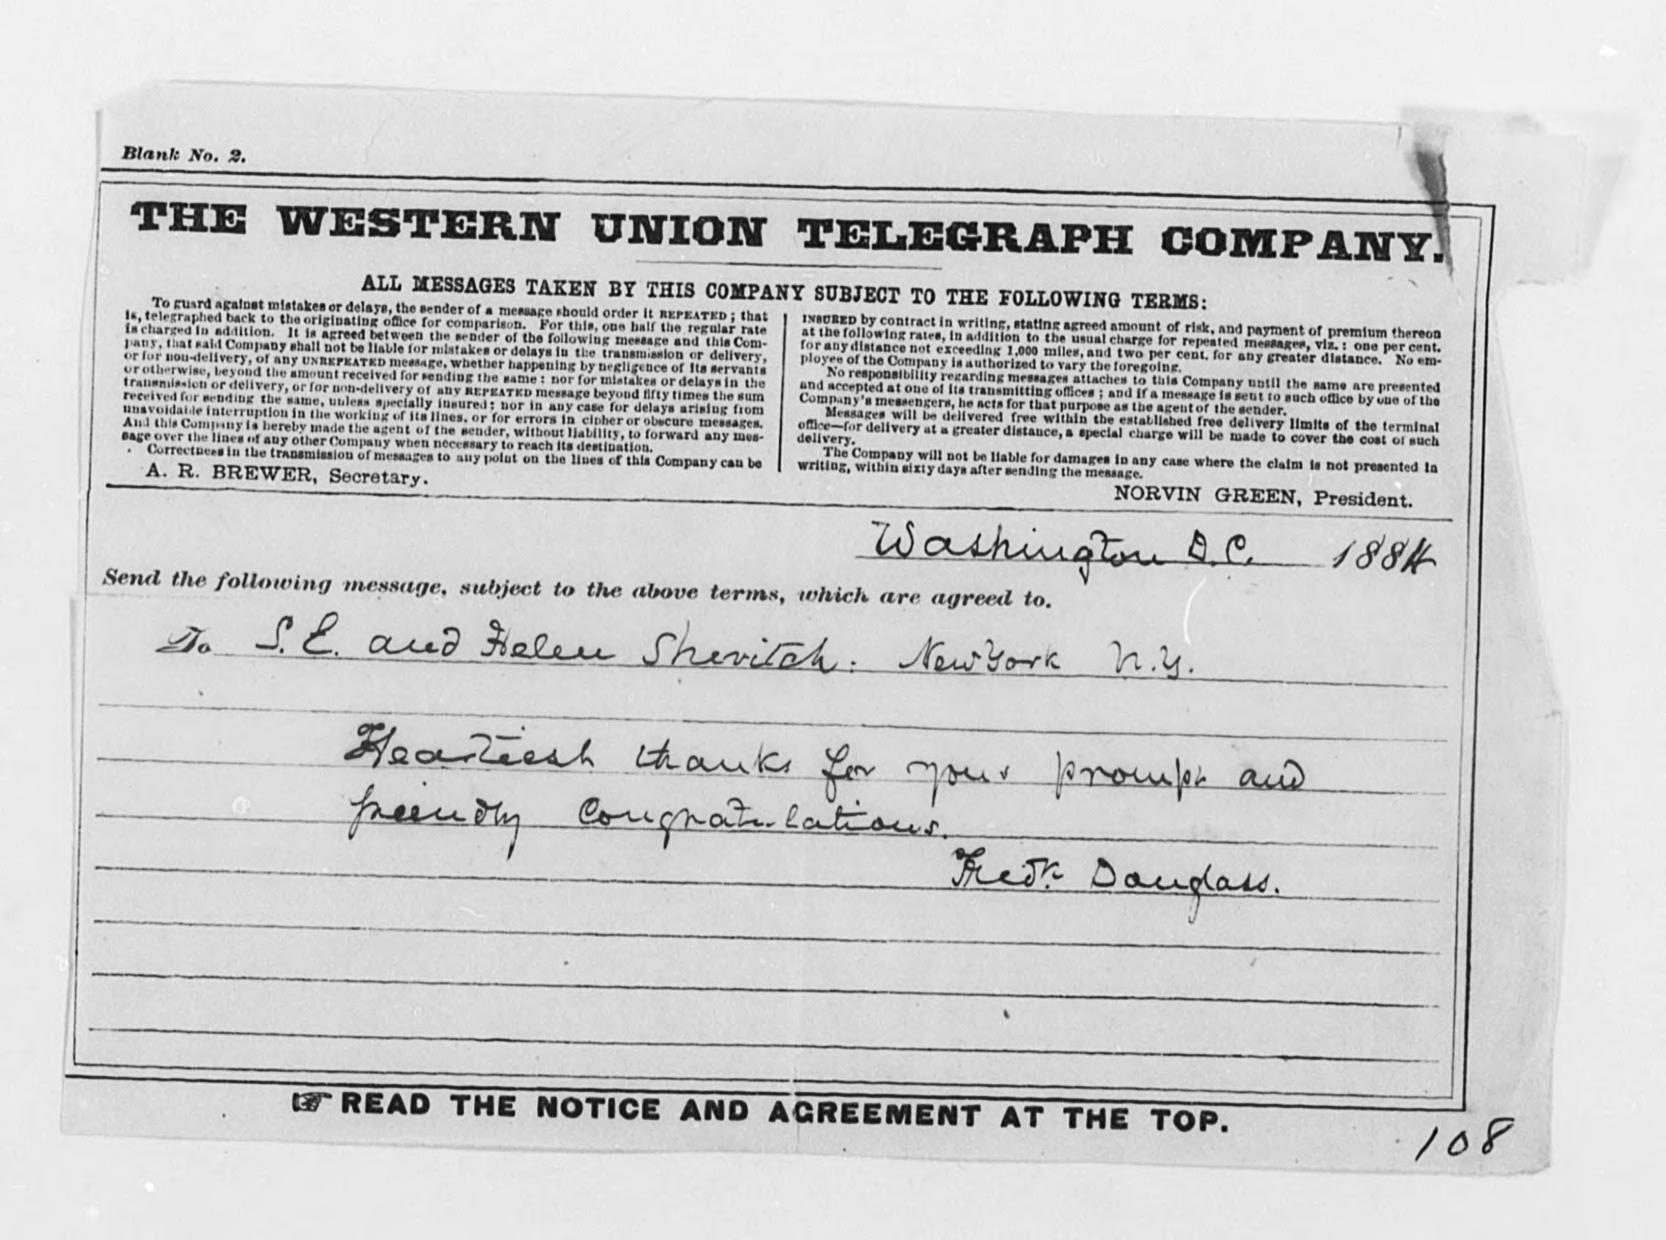 Blank No. 2.
THE WESTERN UNION TELEGRAPH COMPANY.
ALL MESSAGES TAKEN BY THIS COMPANY SUBJECT TO THE FOLLOWING TERMS:
To guard against mistakes or delays, the sender of a message should order it REPEATED; that
is, telegraphed back to the originating office for comparison. For this, one half the regular rate
is charged in addition. It is agreed between the sender of the following message and this Com-
pany, that said Company shall not be liable for mistakes or delays in the transmission or delivery,
or for non-delivery, of any UNREPEATED message, whether happening by negligence of its servants
or otherwise, beyond the amount received for sending the same; nor for mistakes or delays in the
transmission or delivery, or for non-delivery of any REPEATED message beyond fifty times the sum
received for sending the same, unless specially insured; nor in any case for delays arising from
unavoidable interruption in the working of its lines, or for errors in cipher or obscure messages.
And this Company is hereby made the agent of the sender, without liability, to forward any mes-
sage over the lines of any other Company when necessary to reach its destination.
Correctness in the transmission of messages to any point on the lines of this Company can be
A. R. BREWER, Secretary.
INSURED by contract in writing, stating agreed amount of risk, and payment of premium thereon
at the following rates, in addition to the usual charge for repeated messages, viz.: one per cent.
for any distance not exceeding 1,000 miles, and two per cent. for any greater distance. No em-
ployee of the Company is authorized to vary the foregoing.
No responsibility regarding messages attaches to this Company until the same are presented
and accepted at one of its transmitting offices; and if a message is sent to such office by one of the
Company's messengers, he acts for that purpose as the agent of the sender.
Messages will be delivered free within the established free delivery limits of the terminal
office—for delivery at a greater distance, a special charge will be made to cover the cost of such
delivery.
The Company will not be liable for damages in any case where the claim is not presented in
writing, within sixty days after sending the message.
NORVIN GREEN, President.
Washington D.C. 1884
Send the following message, subject to the above terms, which are agreed to.
To S. E. and Helen Shevitch. New York N.Y.
Heartiest thanks for your prompt and
friendly Congratulations.
Fredk Douglass.
☞ READ THE NOTICE AND AGREEMENT AT THE TOP.
108